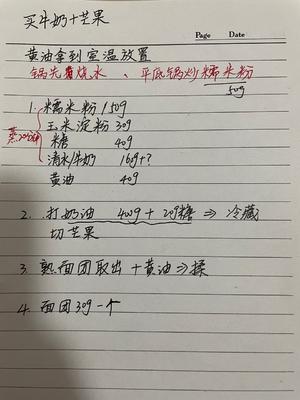 买牛奶+芒果
Page Date
黄油拿到室温放置
锅先看烧水、平底锅炒糯米粉
50g
1. 糯米粉 150g
玉米淀粉 30g
糖 40g
清水/牛奶 160g+?
黄油 40g
蒸20分钟
2. 打奶油 400g + 20g糖 ⇒ 冷藏
切芒果
3. 熟面团取出 + 黄油 ⇒ 揉
4. 面团 30g 一个